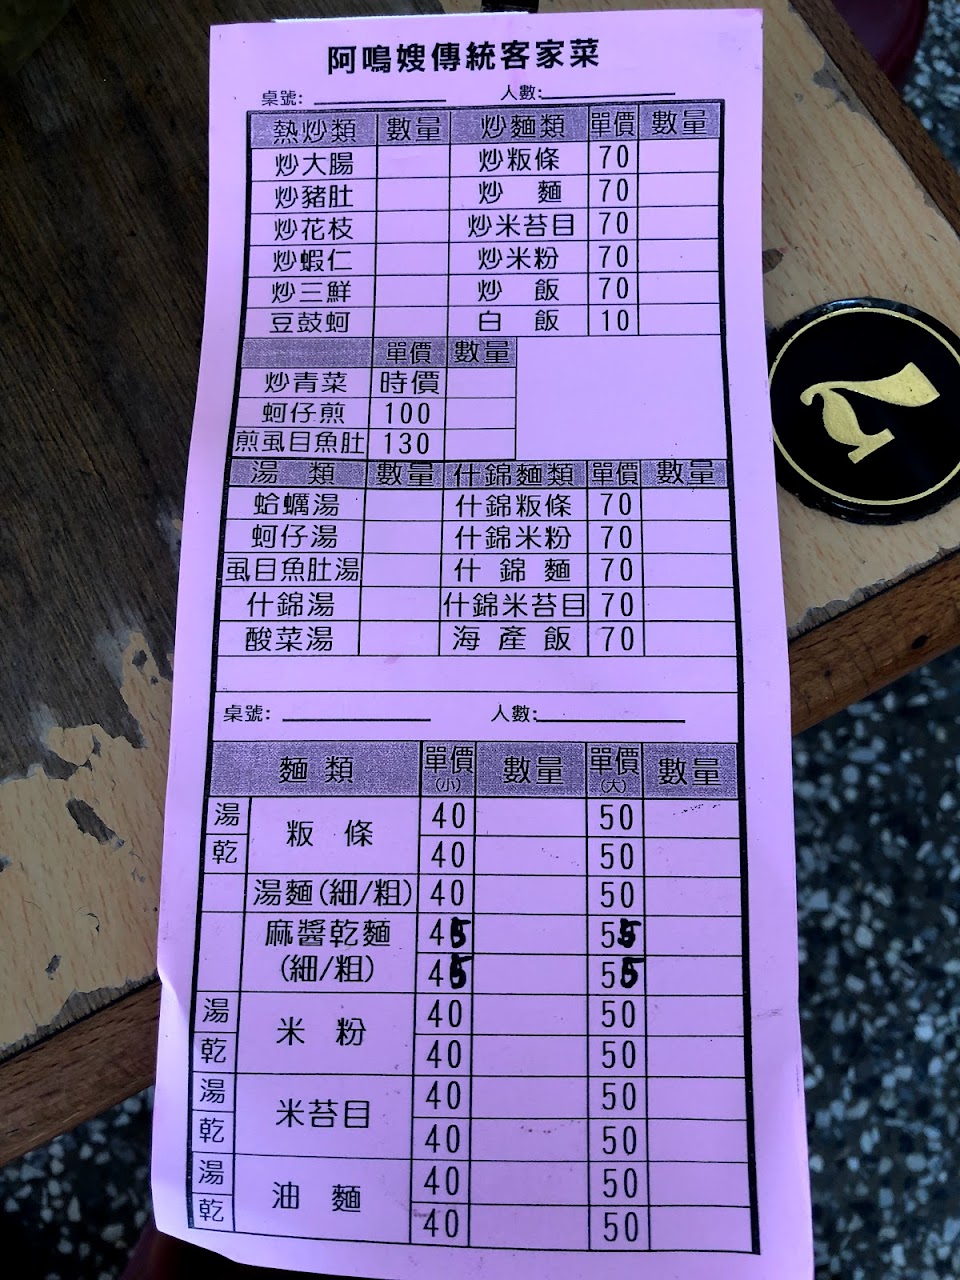 阿鳴嫂傳統客家菜
桌號: 人數:
熱炒類 數量 炒麵類 單價 數量
炒大腸 炒粄條 70
炒豬肚 炒 麵 70
炒花枝 炒米苔目 70
炒蝦仁 炒米粉 70
炒三鮮 炒 飯 70
豆鼓蚵 白 飯 10
單價 數量
炒青菜 時價
蚵仔煎 100
煎虱目魚肚 130
湯 類 數量 什錦麵類 單價 數量
蛤蠣湯 什錦粄條 70
蚵仔湯 什錦米粉 70
虱目魚肚湯 什 錦 麵 70
什錦湯 什錦米苔目 70
酸菜湯 海 產 飯 70
桌號: 人數:
麵 類 單價(小) 數量 單價(大) 數量
湯 粄 條 40 50
乾 40 50
湯麵(細/粗) 40 50
麻醬乾麵 45 55
(細/粗) 45 55
湯 米 粉 40 50
乾 40 50
湯 米苔目 40 50
乾 40 50
湯 油 麵 40 50
乾 40 50